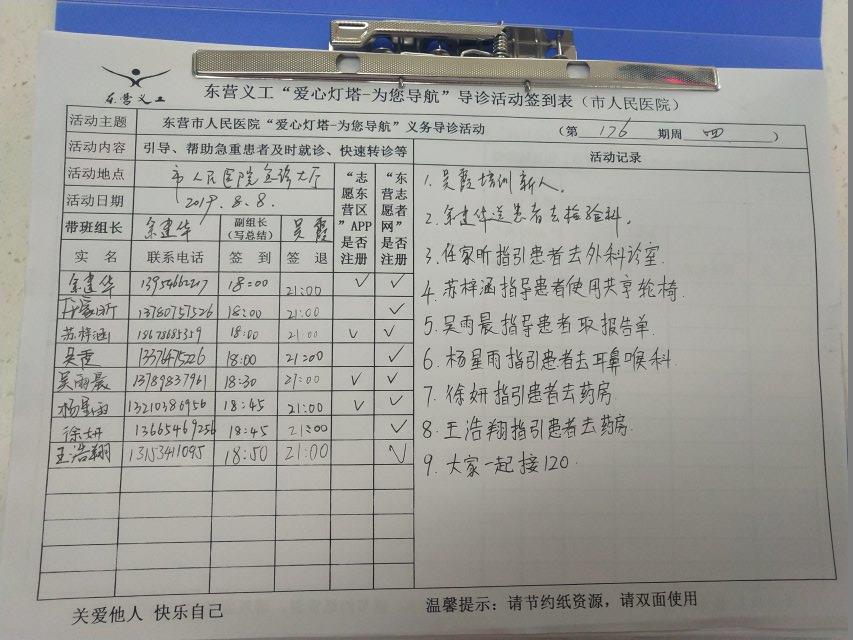 东营义工
东营义工“爱心灯塔-为您导航”导诊活动签到表（市人民医院）
活动主题 东营市人民医院“爱心灯塔-为您导航”义务导诊活动 （第 176 期周 四 ）
活动内容 引导、帮助急重患者及时就诊、快速转诊等
活动地点 市人民医院急诊大厅
活动日期 2019.8.8.
带班组长 余建华 副组长（写总结） 吴霞
“志愿东营区”APP是否注册
“东营志愿者网”是否注册
实名 联系电话 签到 签退
余建华 18:00 21:00 ✓ ✓
任家昕 13780757526 18:00 21:00 ✓
苏梓涵 18678685359 18:00 21:00 ✓ ✓
吴霞 18:00 21:00 ✓
吴雨晨 13789837961 18:30 21:00 ✓ ✓
杨星雨 13210386956 18:45 21:00 ✓ ✓
徐妍 13665469256 18:45 21:00 ✓
王浩翔 13153411095 18:50 21:00 ✓
活动记录
1. 吴霞培训新人。
2. 余建华送患者去检验科。
3. 任家昕指引患者去外科诊室.
4. 苏梓涵指导患者使用共享轮椅.
5. 吴雨晨指导患者取报告单.
6. 杨星雨指引患者去耳鼻喉科.
7. 徐妍指引患者去药房
8. 王浩翔指引患者去药房.
9. 大家一起接120.
关爱他人 快乐自己
温馨提示：请节约纸资源，请双面使用